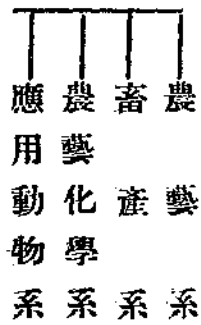 農藝系
畜產系
農藝化學系
應用動物系